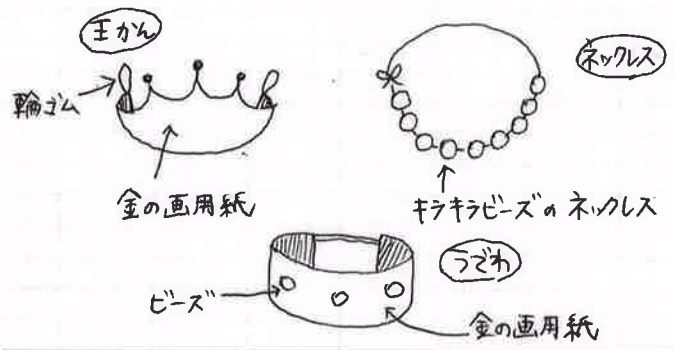 王かん
輪ゴム
金の画用紙
ネックレス
キラキラビーズの ネックレス
うでわ
ビーズ
金の画用紙